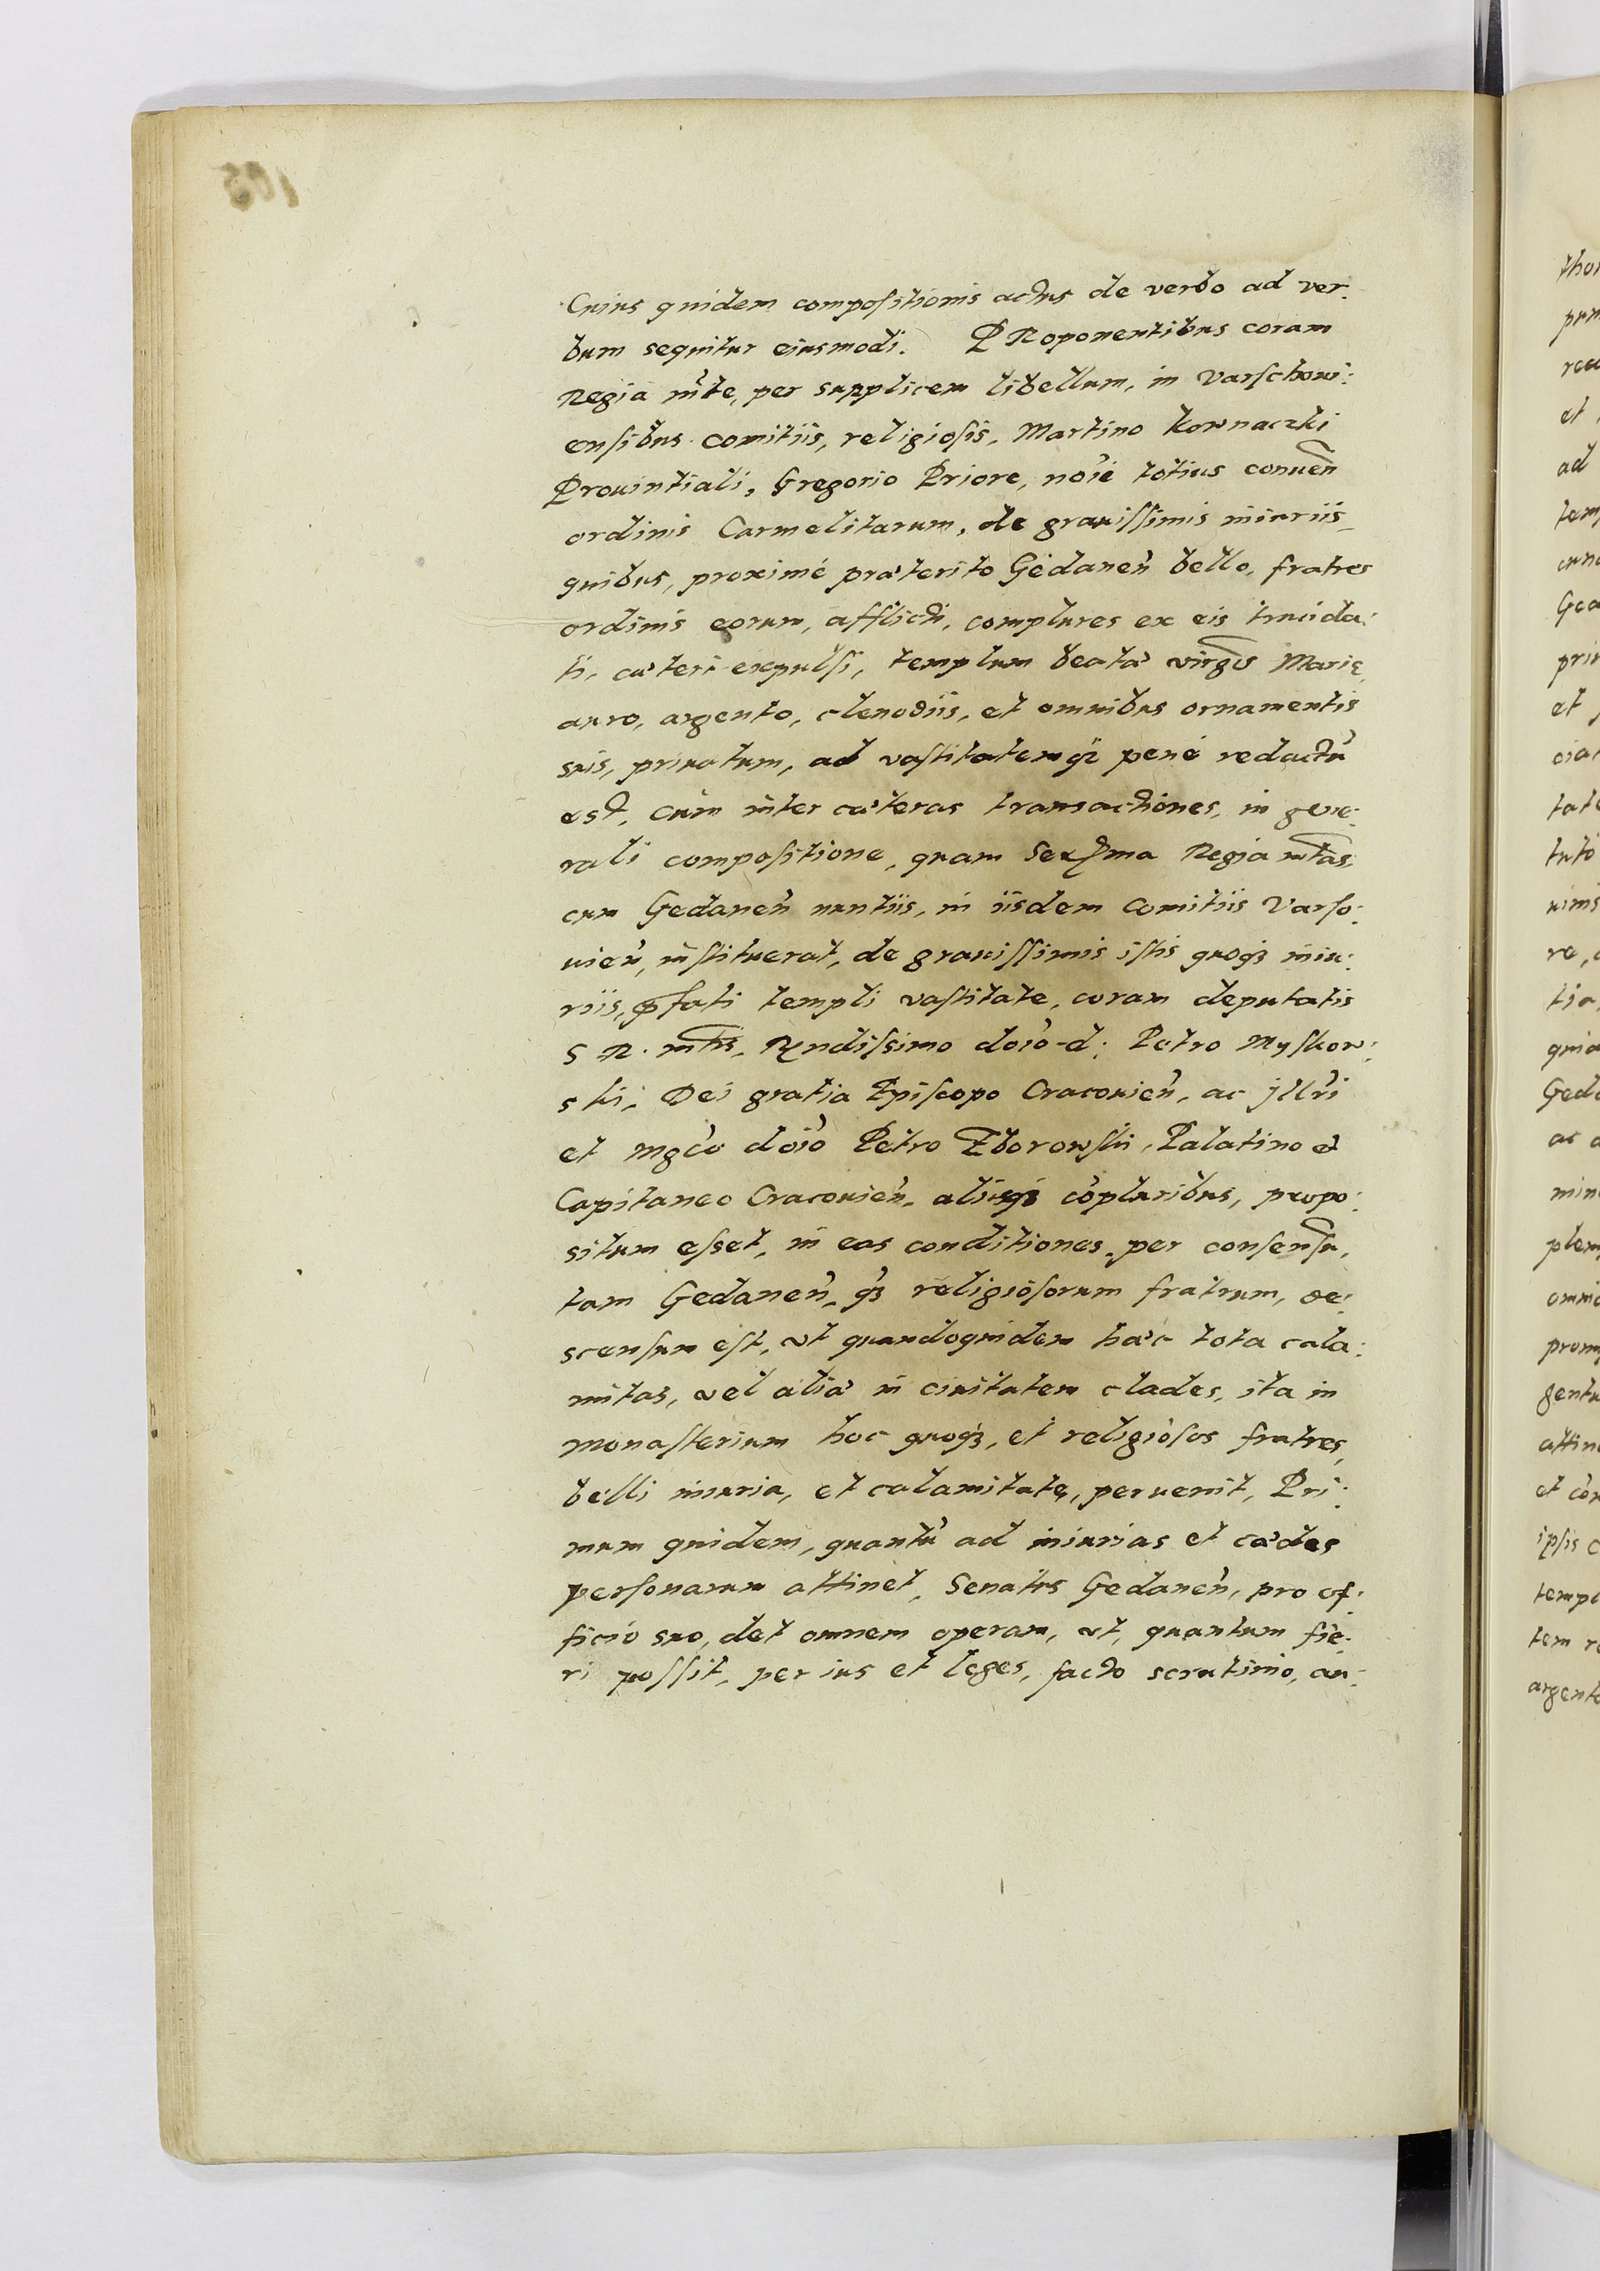 Cuius quidem compositionis actus de verbo ad ver:
bum sequitur eiusmodi. PRoponentibus coram
Regia mte, per supplicem libellum, in Varschoui:
ensibus comitiis, religiosis, Martino Kornaczki
Prouintiali, Gregorio Priore, noie totius conuen
ordinis Carmelitarum, de grauissimis iniuriis
quibus, proximè præterito Gedanen bello, fratres
ordinis eorum, afflicti, complures ex eis trucida:
ti, cæteri expulsi, templum beatæ virgis Marię,
auro, argento, clenodiis, et omnibus ornamentis
suis, priuatum, ad vastitatemq3 penè redactũ
est, cùm inter cæteras transactiones, in gene:
rali compositione, quam Serma Regia mtas,
cum Gedanen nuntiis, in iisdem Comitiis Varso:
uien, instituerat, de grauissimis istis quoq3 iniu:
riis, pfati templi vastitate, coram deputatis
S R. mtis, Rndissimo doio d: Petro Myskow:
ski, Dei gratia Episcopo Cracouien, ac jllri
et mgco doio Petro Zborowski, Palatino et
Capitaneo Cracouien, aliisq3 cõpluribus, propo:
situm esset, in eas conditiones, per consensũ,
tam Gedanen, q3 religiosorum fratrum, de:
scensum est, vt quandoquidem hæc tota cala:
mitas, vel aliæ in ciuitatem clades, ita in
monasterium hoc quoq3, et religiosos fratres,
belli iniuria, et calamitate, peruenit, Pri:
mum quidem, quantũ ad iniurias et cædes
personarum attinet, Senatus Gedanen, pro of:
ficio suo, det omnem operam, vt, quantum fie:
ri possit, per ius et leges, facto scrutinio, au: